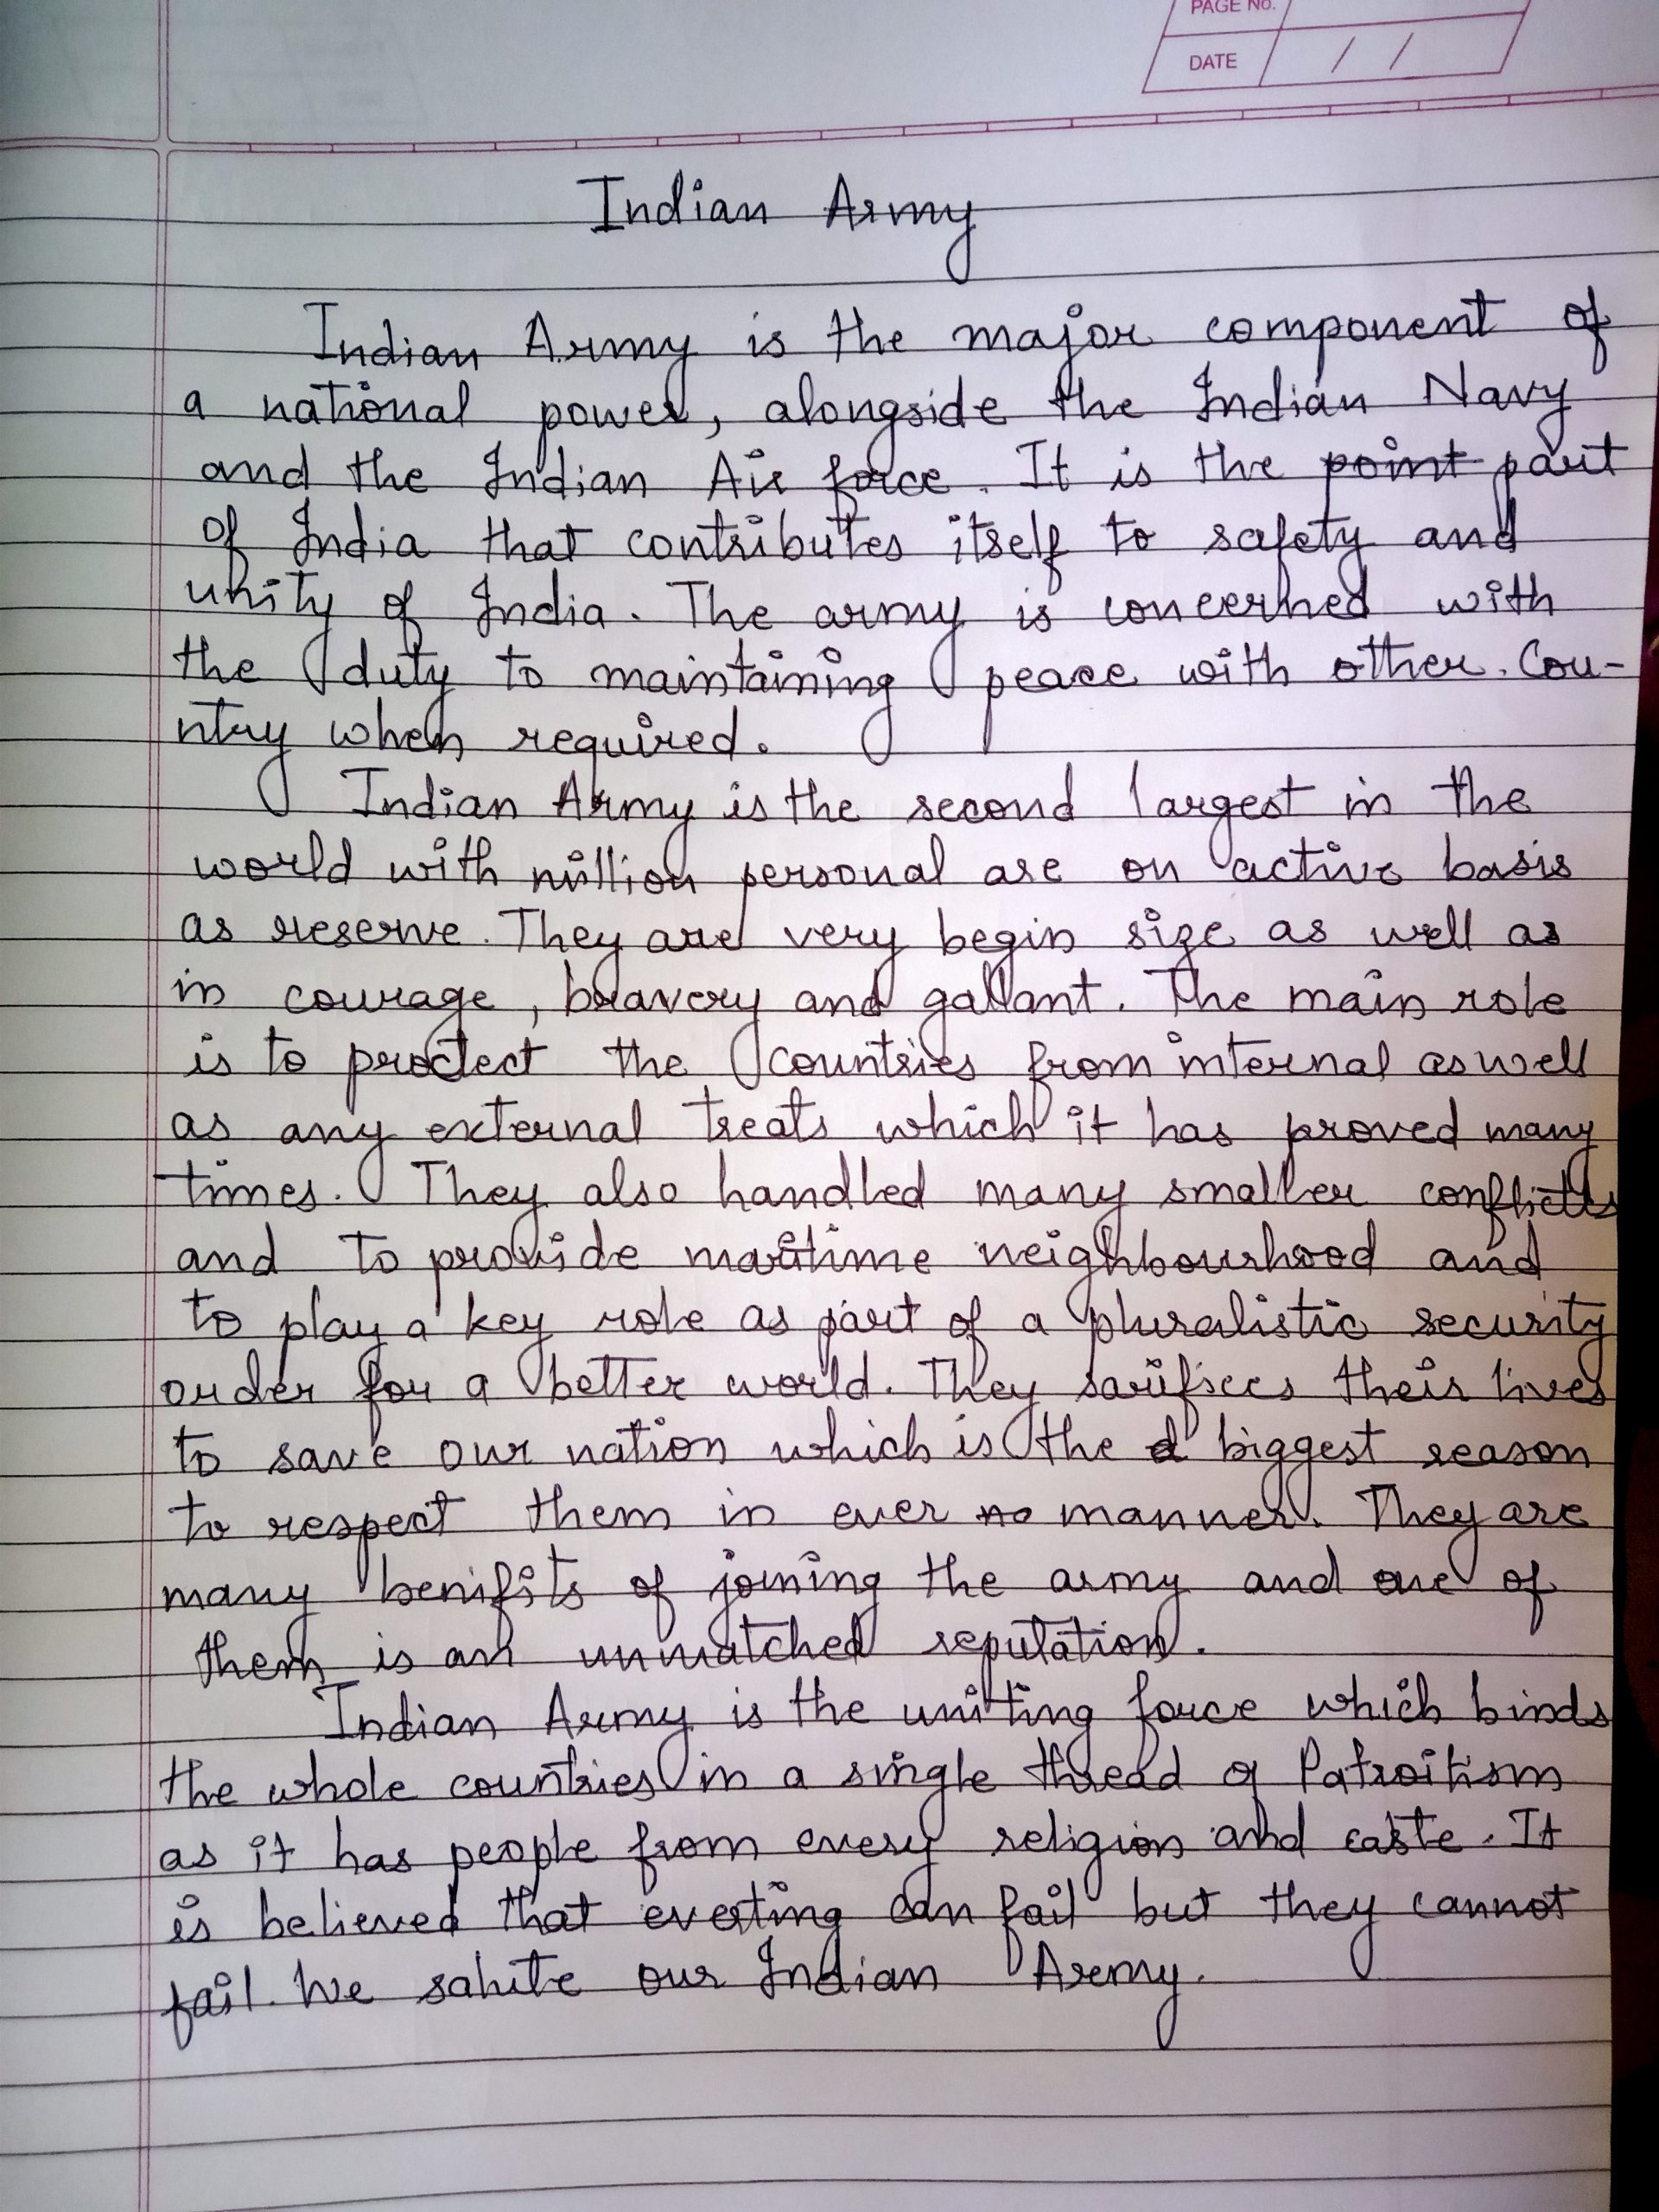 PAGE No.
DATE / /
Indian Army
Indian Army is the major component of
a national power, alongside the Indian Navy
and the Indian Air force. It is the point part
of India that contributes itself to safety and
unity of India. The army is concerned with
the duty to maintaining peace with other. Cou-
ntry when required.
Indian Army is the second largest in the
world with million personal are on active basis
as reserve. They are very begin size as well as
in courage, bravery and gallant. The main role
is to proctect the countries from internal as well
as any external treats which it has proved many
times. They also handled many smaller conflicts
and to provide maritime neighbourhood and
to play a key role as part of a pluralistic security
order for a better world. They sarifices their lives
to save our nation which is the biggest reason
to respect them in ever no manner. They are
many benifits of joining the army and one of
them is an unmatched reputation.
Indian Army is the uniting force which binds
the whole countries in a single thread of Patroitism
as it has people from every religion and caste. It
is believed that everting can fail but they cannot
fail. We salute our Indian Army.